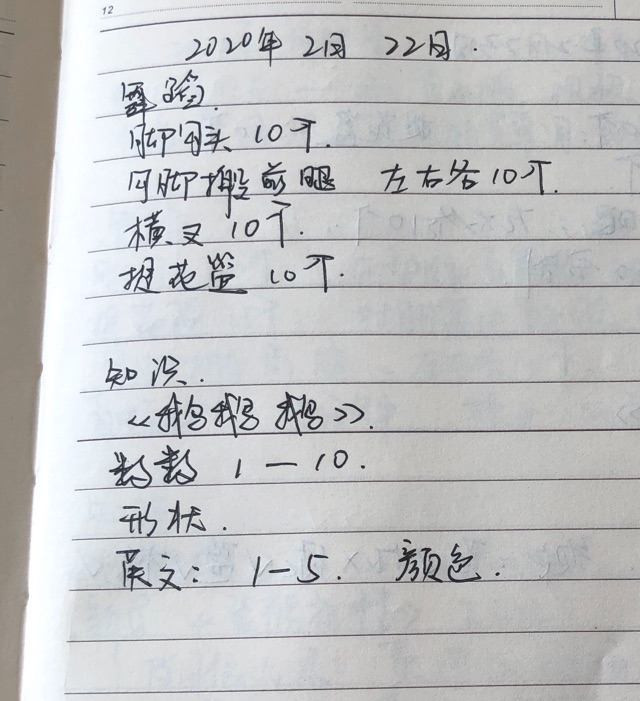 12
2020年 2月 22日.
舞蹈.
脚勾头 10个.
勾脚搬前腿 左右各10个.
横叉 10个.
提花篮 10个.
知识.
《鹅鹅鹅》.
数数 1 — 10.
形状.
英文: 1-5. 颜色.